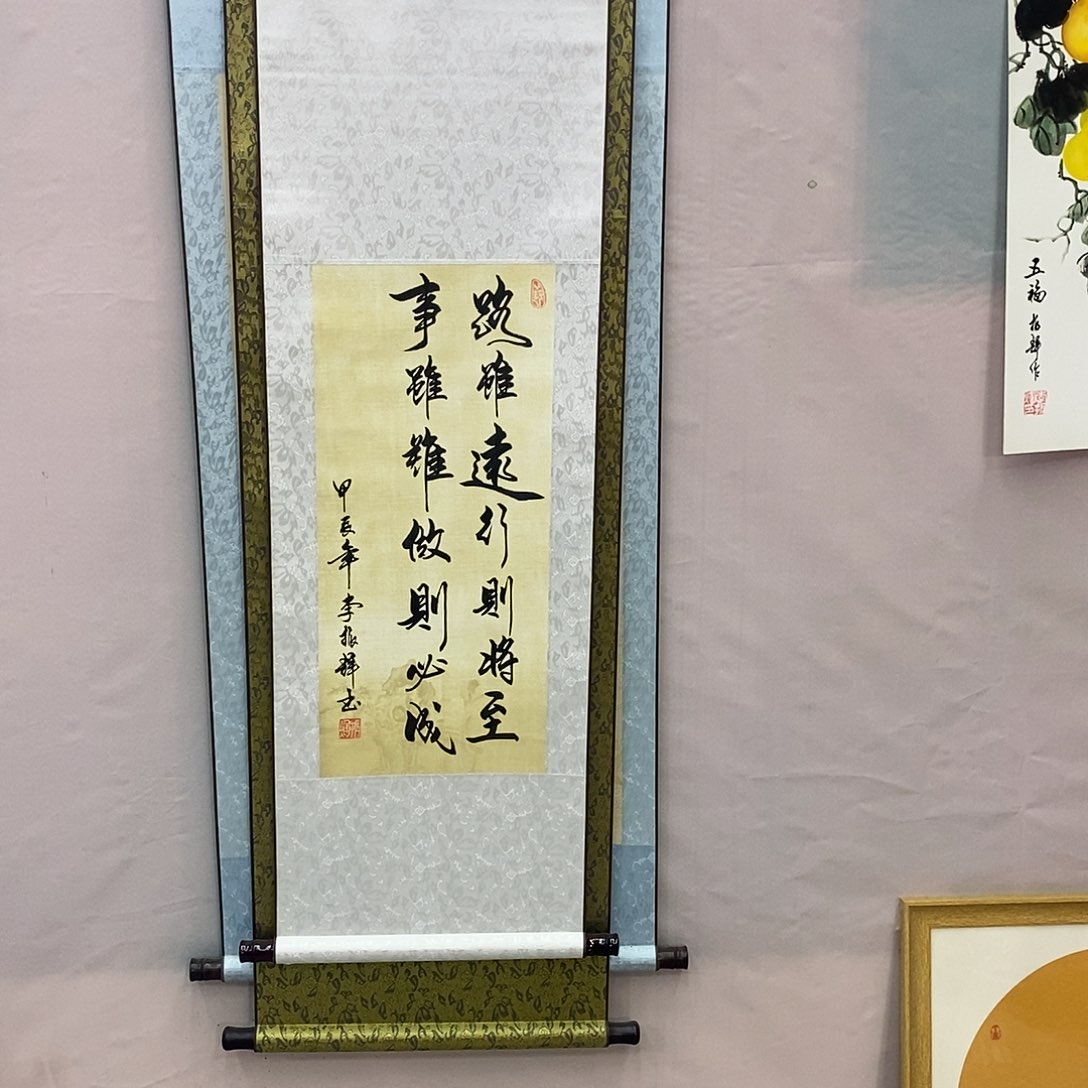 路雖遠行則將至
事雖難做則必成
甲辰年李振輝书
五福